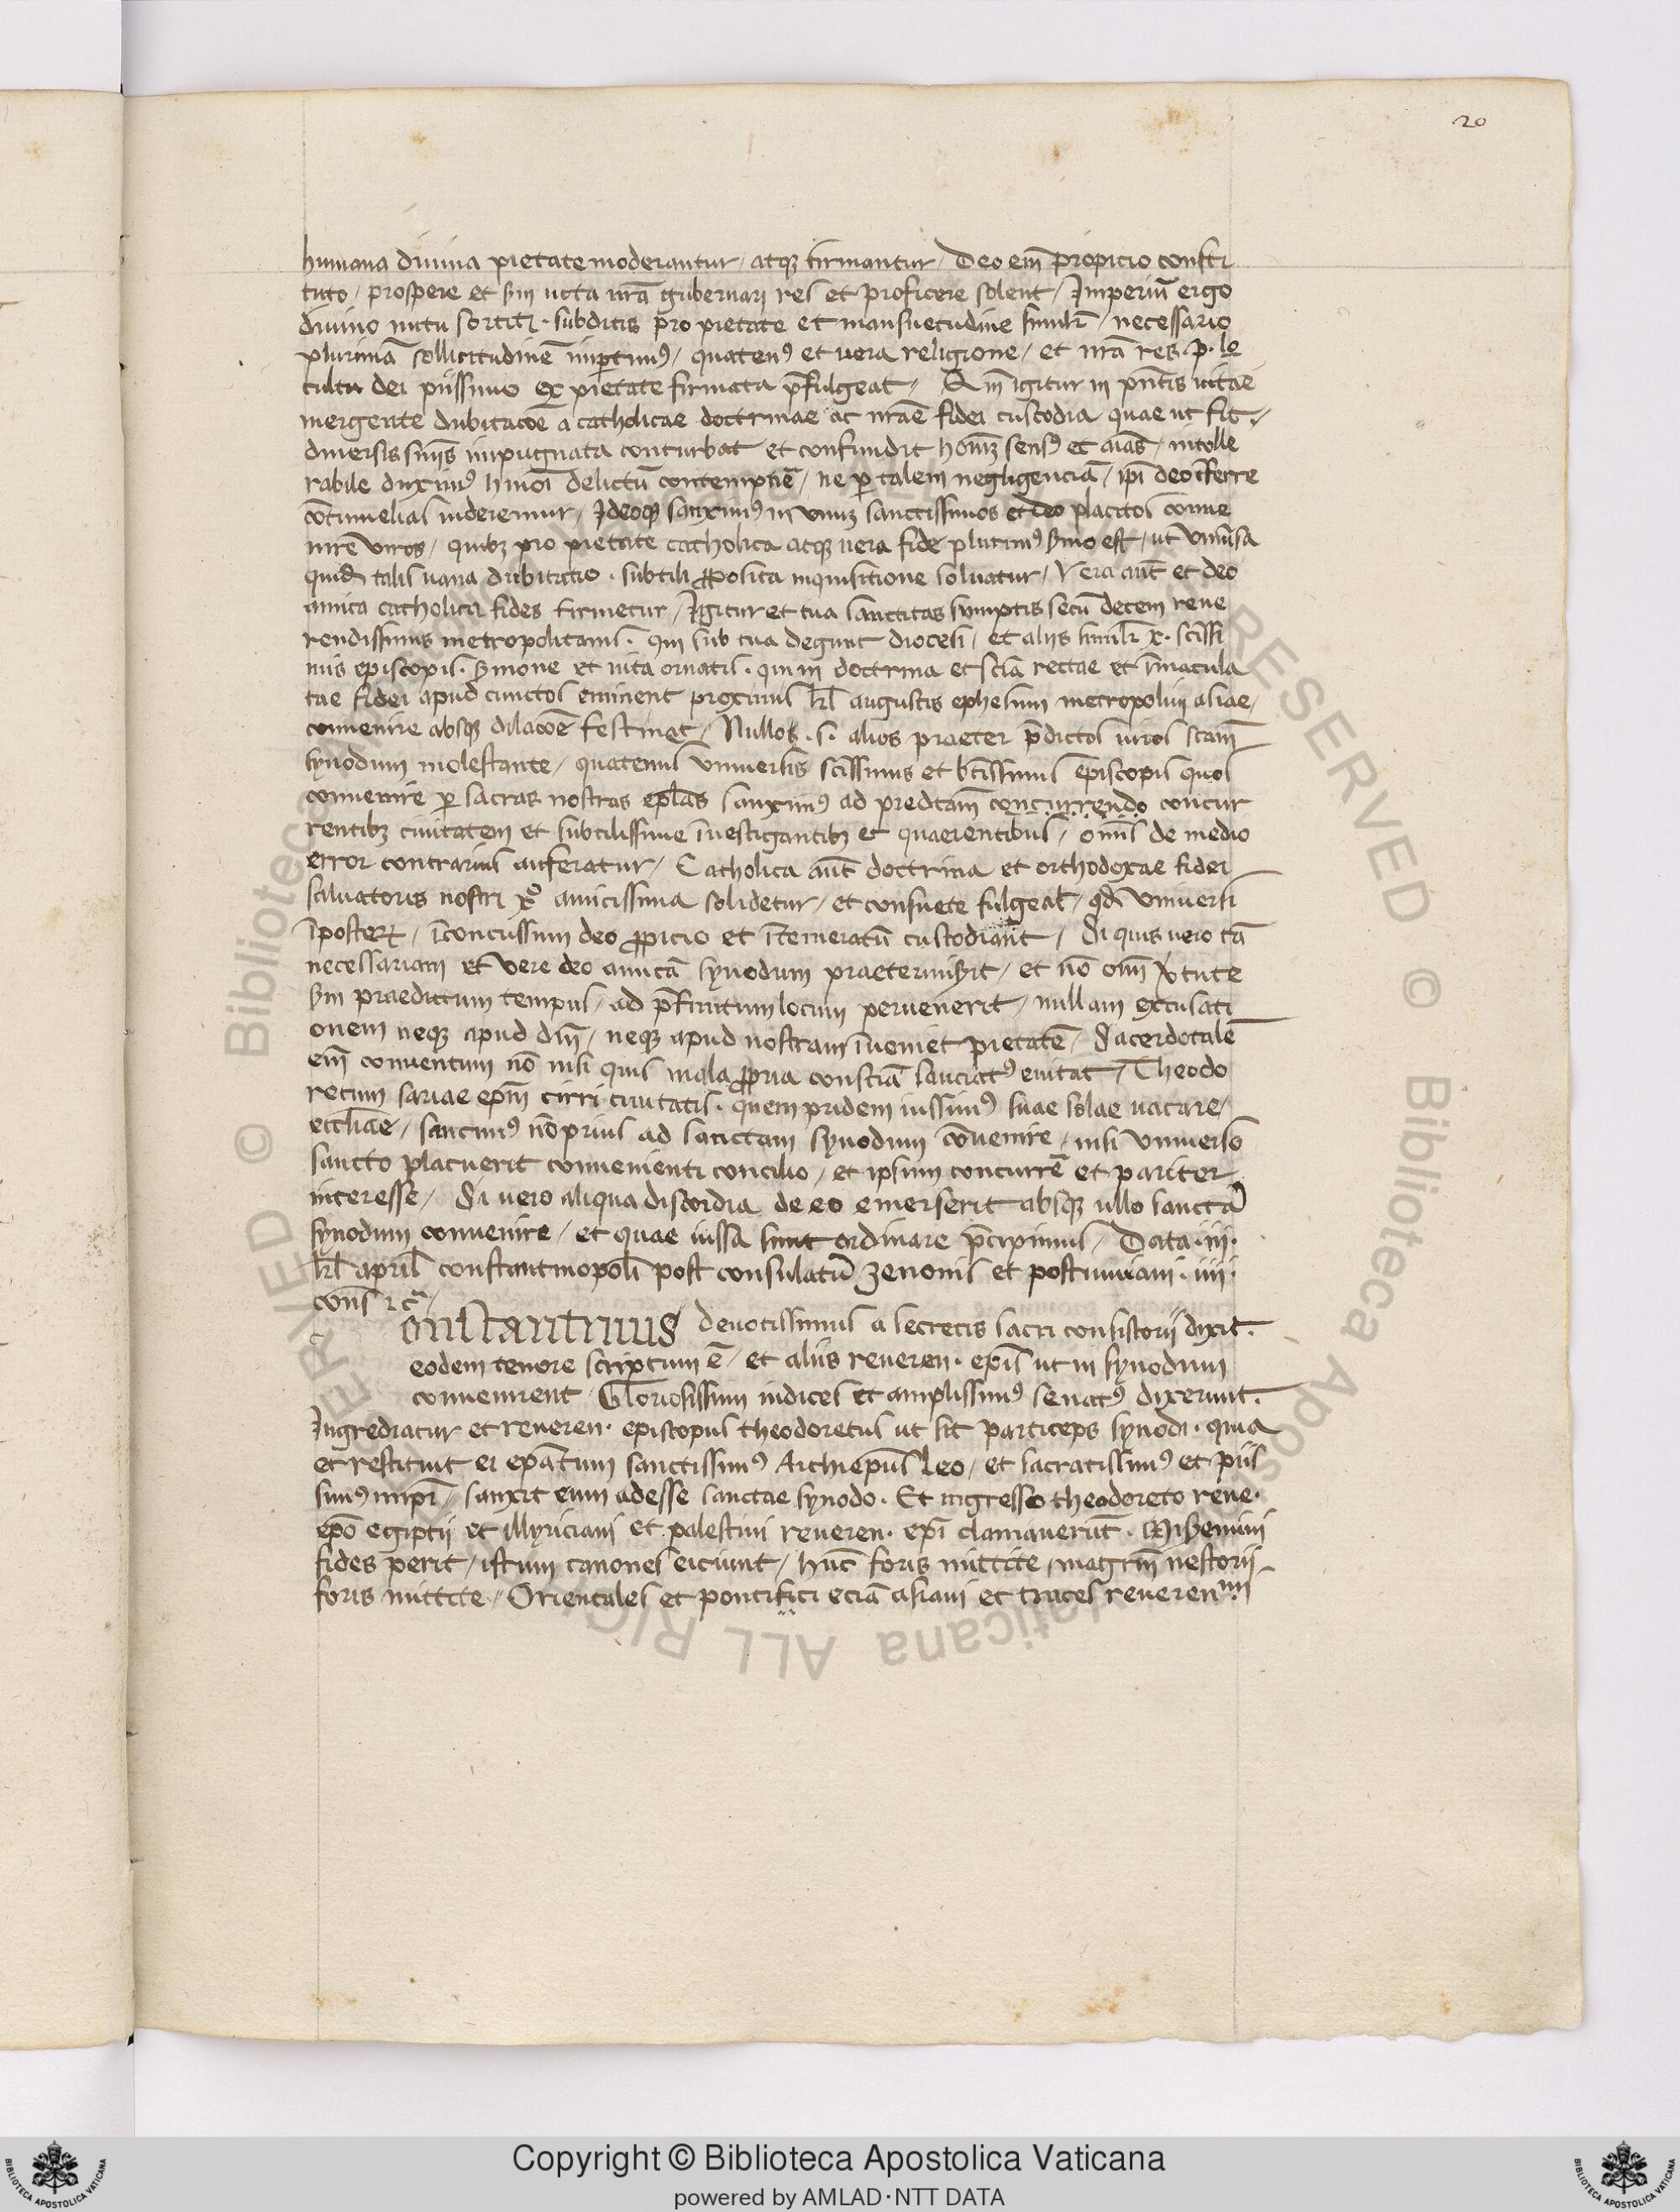 20
humana diuina pietate moderantur / atqꝫ firmantur / Deo em̄ propicio consti
tuto / prospere et sm̄ uota nrā gubernari res et proficere solent / Imperiū ergo
diuino nutu sortiti · subditis pro pietate et mansuetudine simulr̄ / necessario
plurimā sollicitudinē impertimꝰ / quatenꝰ et uera religione / et nrā res · p · le
cultu dei piissimo ex pietate firmata p̄fulgeat / Qm̄ igitur in pn̄tis uitae
mergente dubitacōe a catholicae doctrinae ac nrāe fidei custodia quae ut fit /
diuersis snīis impugnata conturbat et confundit homꝫ sensꝰ et aīas / intolle
rabile duximꝰ hmōi delictū contempnē / ne ꝑ talem negligenciā / ipī deo īferre
cōtumelias uideremur / Ideoqꝫ sanximꝰ in vnuꝫ sanctissimos et deo placitos conue
nirē viros / quibꝫ pro pietate catholica atqꝫ uera fide plurimꝰ smo est / ut vniūsa
quidē talis uana dubitatio · subtili ꝓposita inquisitione soluatur / Vera aūt et deo
amica catholica fides firmetur / Igitur et tua sanctitas sumptis secū decem reue
rendissimis metropolitanis · qui sub tua degunt diocesi / et aliis simil'r x · scissi
mis episcopis · smone et uita ornatis · qui in doctrina et scīa rectae et īmacula
tae fidei apud cunctos eminent proximis kl̄ augustis ephesum metropolim asiae /
conuenire absqꝫ dilacōe festinet / Nullos · s · alios praeter p̄dictos uiros scam̄
synodum molestante / quatenus vniuersis scissimis et btissimis episcopis quos
conuenire ꝑ sacras nostras eplās sanximꝰ ad predctam̄ concurrendo concur
rentibꝫ ciuitatem et subtilissime īuestigantibꝫ et quaerentibus / omīs de medio
error contrarius auferatur / Catholica aūt doctrina et orthodoxae fidei
saluatoris nostri xp̄o amicissima solidetur / et consuete fulgeat / qd̄ vniuersi
īposteꝝ / īconcussum deo ꝓpicio et ītemeratū custodiant / Si quis uero tā
necessariam et vere deo amicā synodum praetermis̄it / et nō omī v̄tute
sm̄ praedictum tempus / ad p̄finitum locum peruenerit / nullam excusati
onem neqꝫ apud dm̄ / neqꝫ apud nostram īueniet pietatē / Sacerdotalē
em̄ conuentum nō nisi quis mala ꝓpria consciā sauciatꝰ euitat / Theodo
retum sariae epm̄ cirri ciuitatis · quem pridem iussimꝰ suae solae uacare /
eccliāe / sancimꝰ nō prius ad sanctam synodum cōuenire / nisi vniuerso
sancto placuerit conuenienti concilio / et ipsum concurrē et pariter
interesse / Si uero aliqua discordia de eo emerserit absqꝫ ullo sanctā
synodum conuenire / et quae iussa sunt ordinare p̄cipimus / Data · iii ·
kl̄ april̄ constantinopoli post consulatū zenonis et postumiani · iiii ·
cons̄ ⁊ c̄ /
c onstantinus deuotissimus a secretis sacri consistorii dixit ·
eodem tenore scriptum ē / et aliis reueren · epīs ut in synodum
conuenirent Gloriosissimi iudices et amplissimꝰ senatꝰ dixerunt ·
Ingrediatur et reueren · episcopus theodoretus ut sit particeps synodi · quia
et restituit ei epātum sanctissimꝰ Archiepūs Leo / et sacratissimꝰ et piis
simꝰ impr̄ / sanxit eum adesse sanctae synodo · Et ingresso theodoreto reue ·
epō egiptii et illyriciani et palestini reueren · epī clamauerūt · Misemini
fides perit / istum canones eiciunt / hūc foris mittite / magrm̄ nestorii
foris mittite / Orientales et pontifici eciā asiani et traces reueren mi
© Biblioteca Apostolica Vaticana ALL RIGHTS RESERVED © Biblioteca Apostolica Vaticana ALL RIGHTS RESERVED
Copyright © Biblioteca Apostolica Vaticana
powered by AMLAD·NTT DATA
BIBLIOTECA APOSTOLICA VATICANA
BIBLIOTECA APOSTOLICA VATICANA